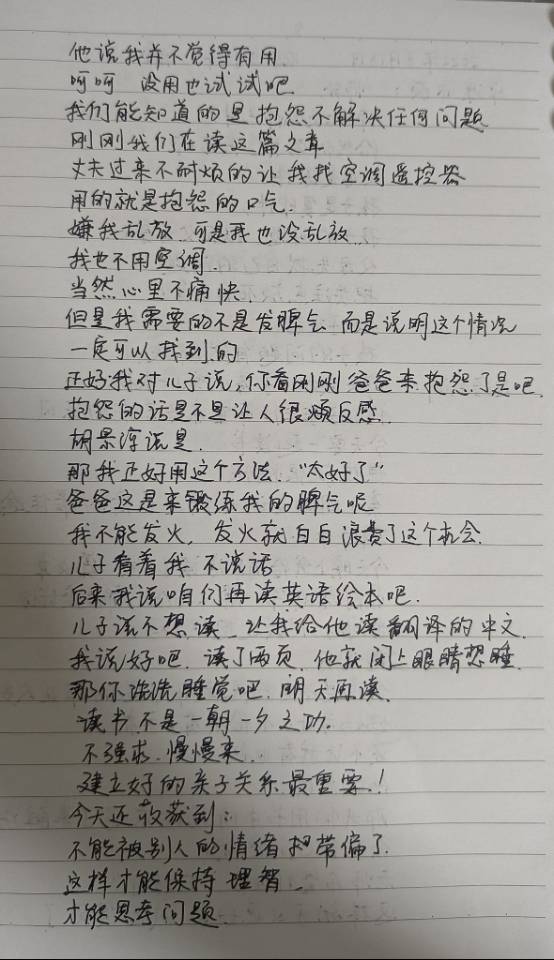 他说我并不觉得有用.
呵呵 没用也试试吧
我们能知道的是抱怨不解决任何问题
刚刚我们在读这篇文章
丈夫过来不耐烦的让我找空调遥控器
用的就是抱怨的口气.
嫌我乱放 可是我也没乱放
我也不用空调
当然心里不痛快
但是我需要的不是发脾气 而是说明这个情况
一定可以找到的
正好我对儿子说,你看刚刚爸爸来抱怨了是吧.
抱怨的话是不是让人很烦反感.
胡景淳说是.
那我正好用这个方法. "太好了"
爸爸这是来锻练我的脾气呢
我不能发火, 发火就白白浪费了这个机会.
儿子看着我 不说话
后来我说咱们再读英语绘本吧.
儿子说不想读 让我给他读翻译的中文.
我说好吧. 读了两页. 他就闭上眼睛想睡.
那你洗洗睡觉吧. 明天再读.
读书不是一朝一夕之功.
不强求. 慢慢来.
建立好的亲子关系最重要!
今天还收获到:
不能被别人的情绪把带偏了.
这样才能保持理智.
才能思考问题.